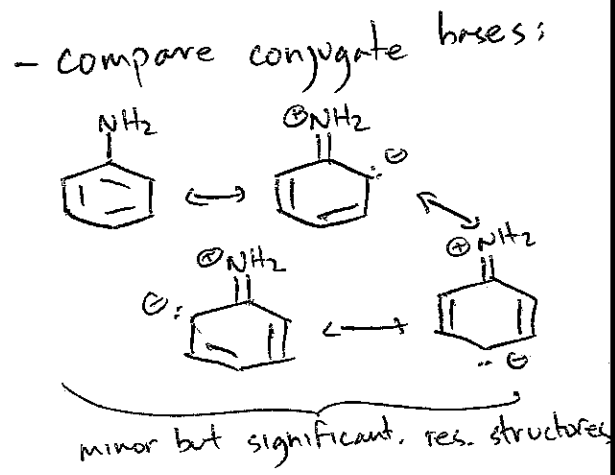 - compare conjugate bases:
NH2
⊕NH2
⊖
⊕NH2
⊕NH2
⊖
⊖
minor but significant. res. structores